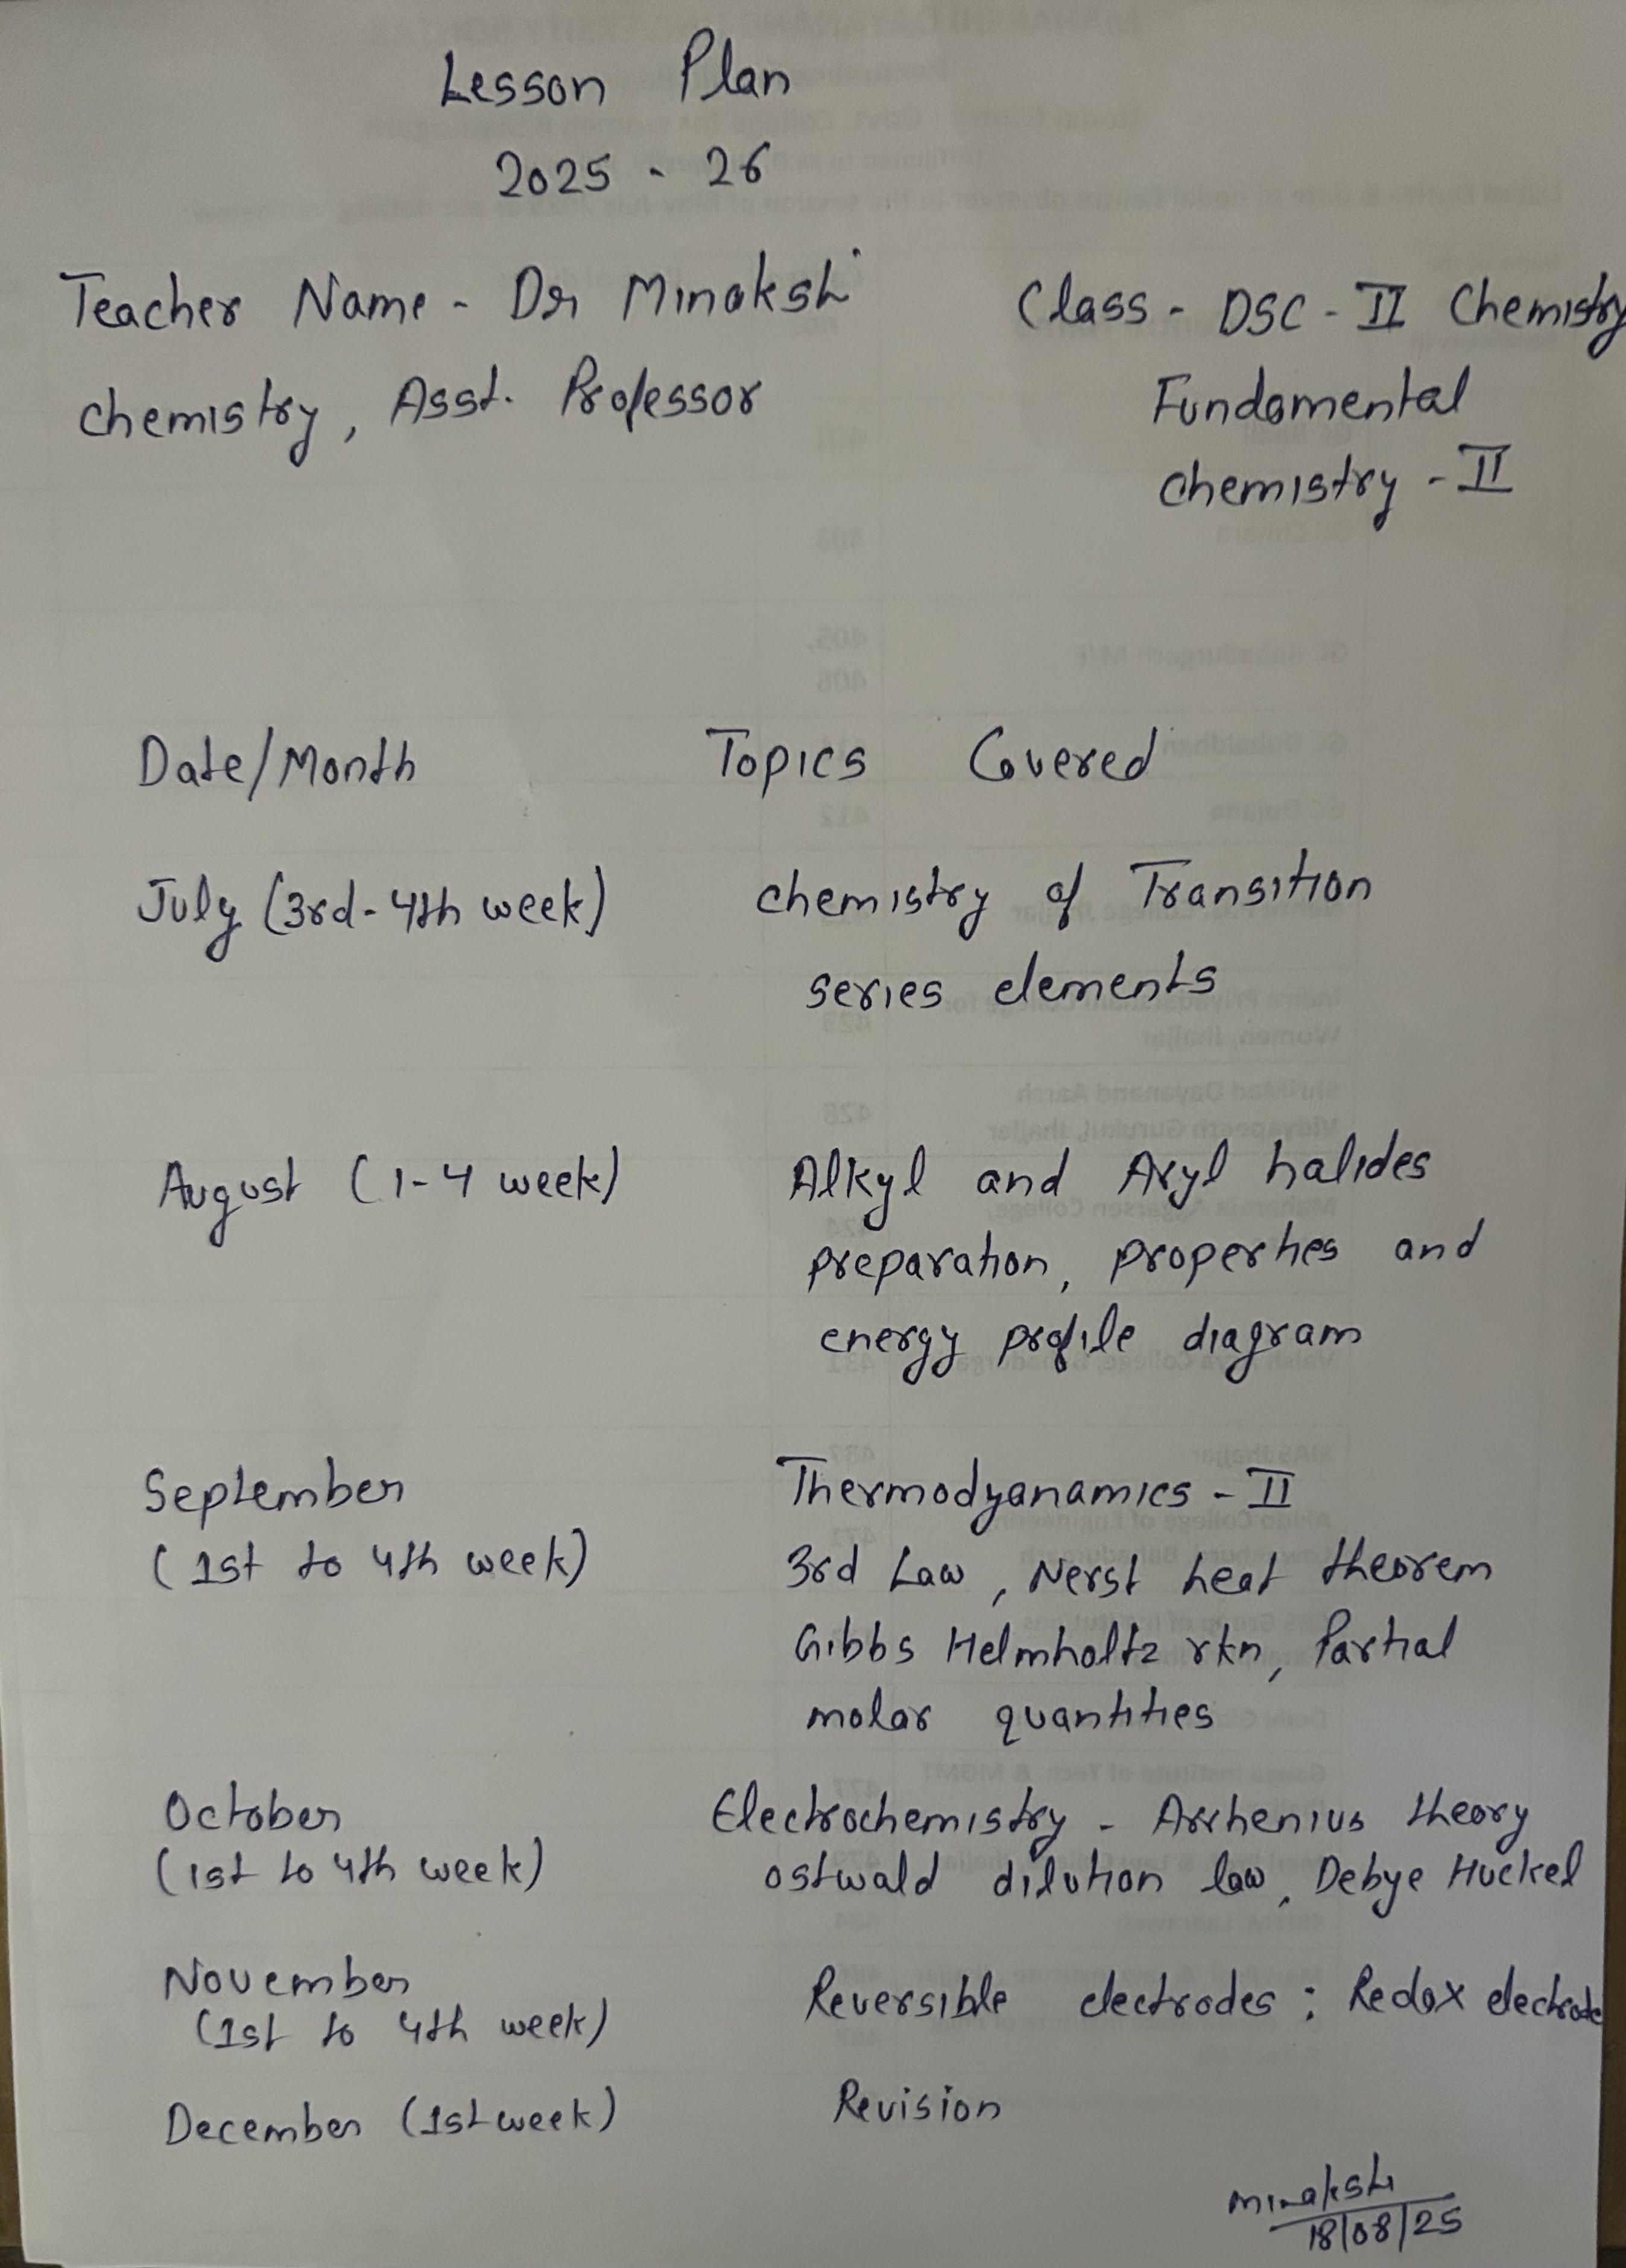 Lesson Plan
2025 - 26
Teacher Name - Dr Minakshi Class - DSC - II Chemistry
Chemistry, Asst. Professor Fundamental
Chemistry - II
Date/Month Topics Covered
July (3rd - 4th week) Chemistry of Transition
series elements
August (1-4 week) Alkyl and Aryl halides
preparation, properties and
energy profile diagram
September Thermodyanamics - II
(1st to 4th week) 3rd Law, Nerst heat theorem
Gibbs Helmholtz rkn, Partial
molar quantities
October Electrochemistry - Arrhenius theory
(1st to 4th week) ostwald dilution law, Debye Huckel
November Reversible electrodes ; Redox electrode
(1st to 4th week)
December (1st week) Revision
Minakshi
18/08/25